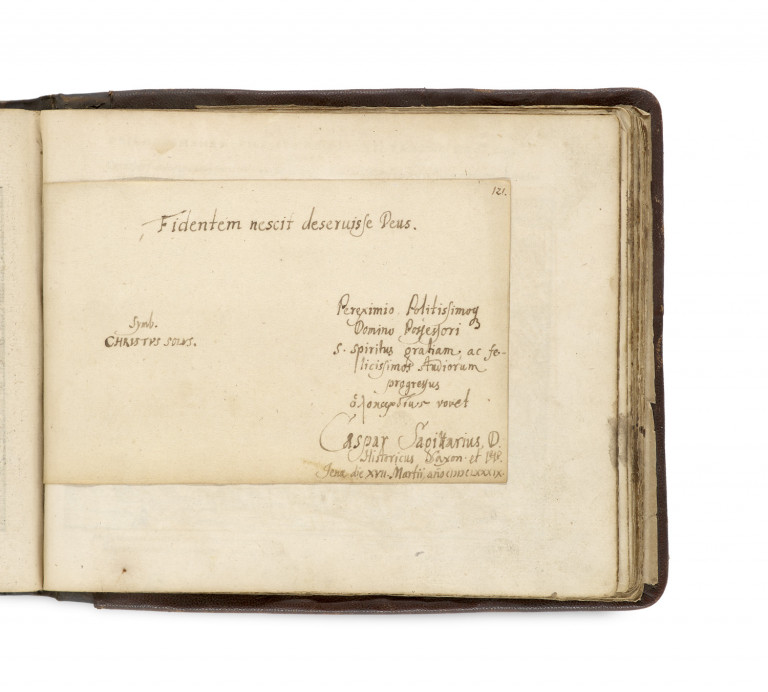 121.
Fidentem nescit deseruisse Deus.
Symb.
CHRISTVS SOLUS.
Pereximio Politissimoq
Domino Possessori
S. Spiritus gratiam, ac fe-
licissimos studiorum
progressus
vovet
Caspar Sagittarius, D.
Historicus Saxon. et
Jenæ die XVII. Martii